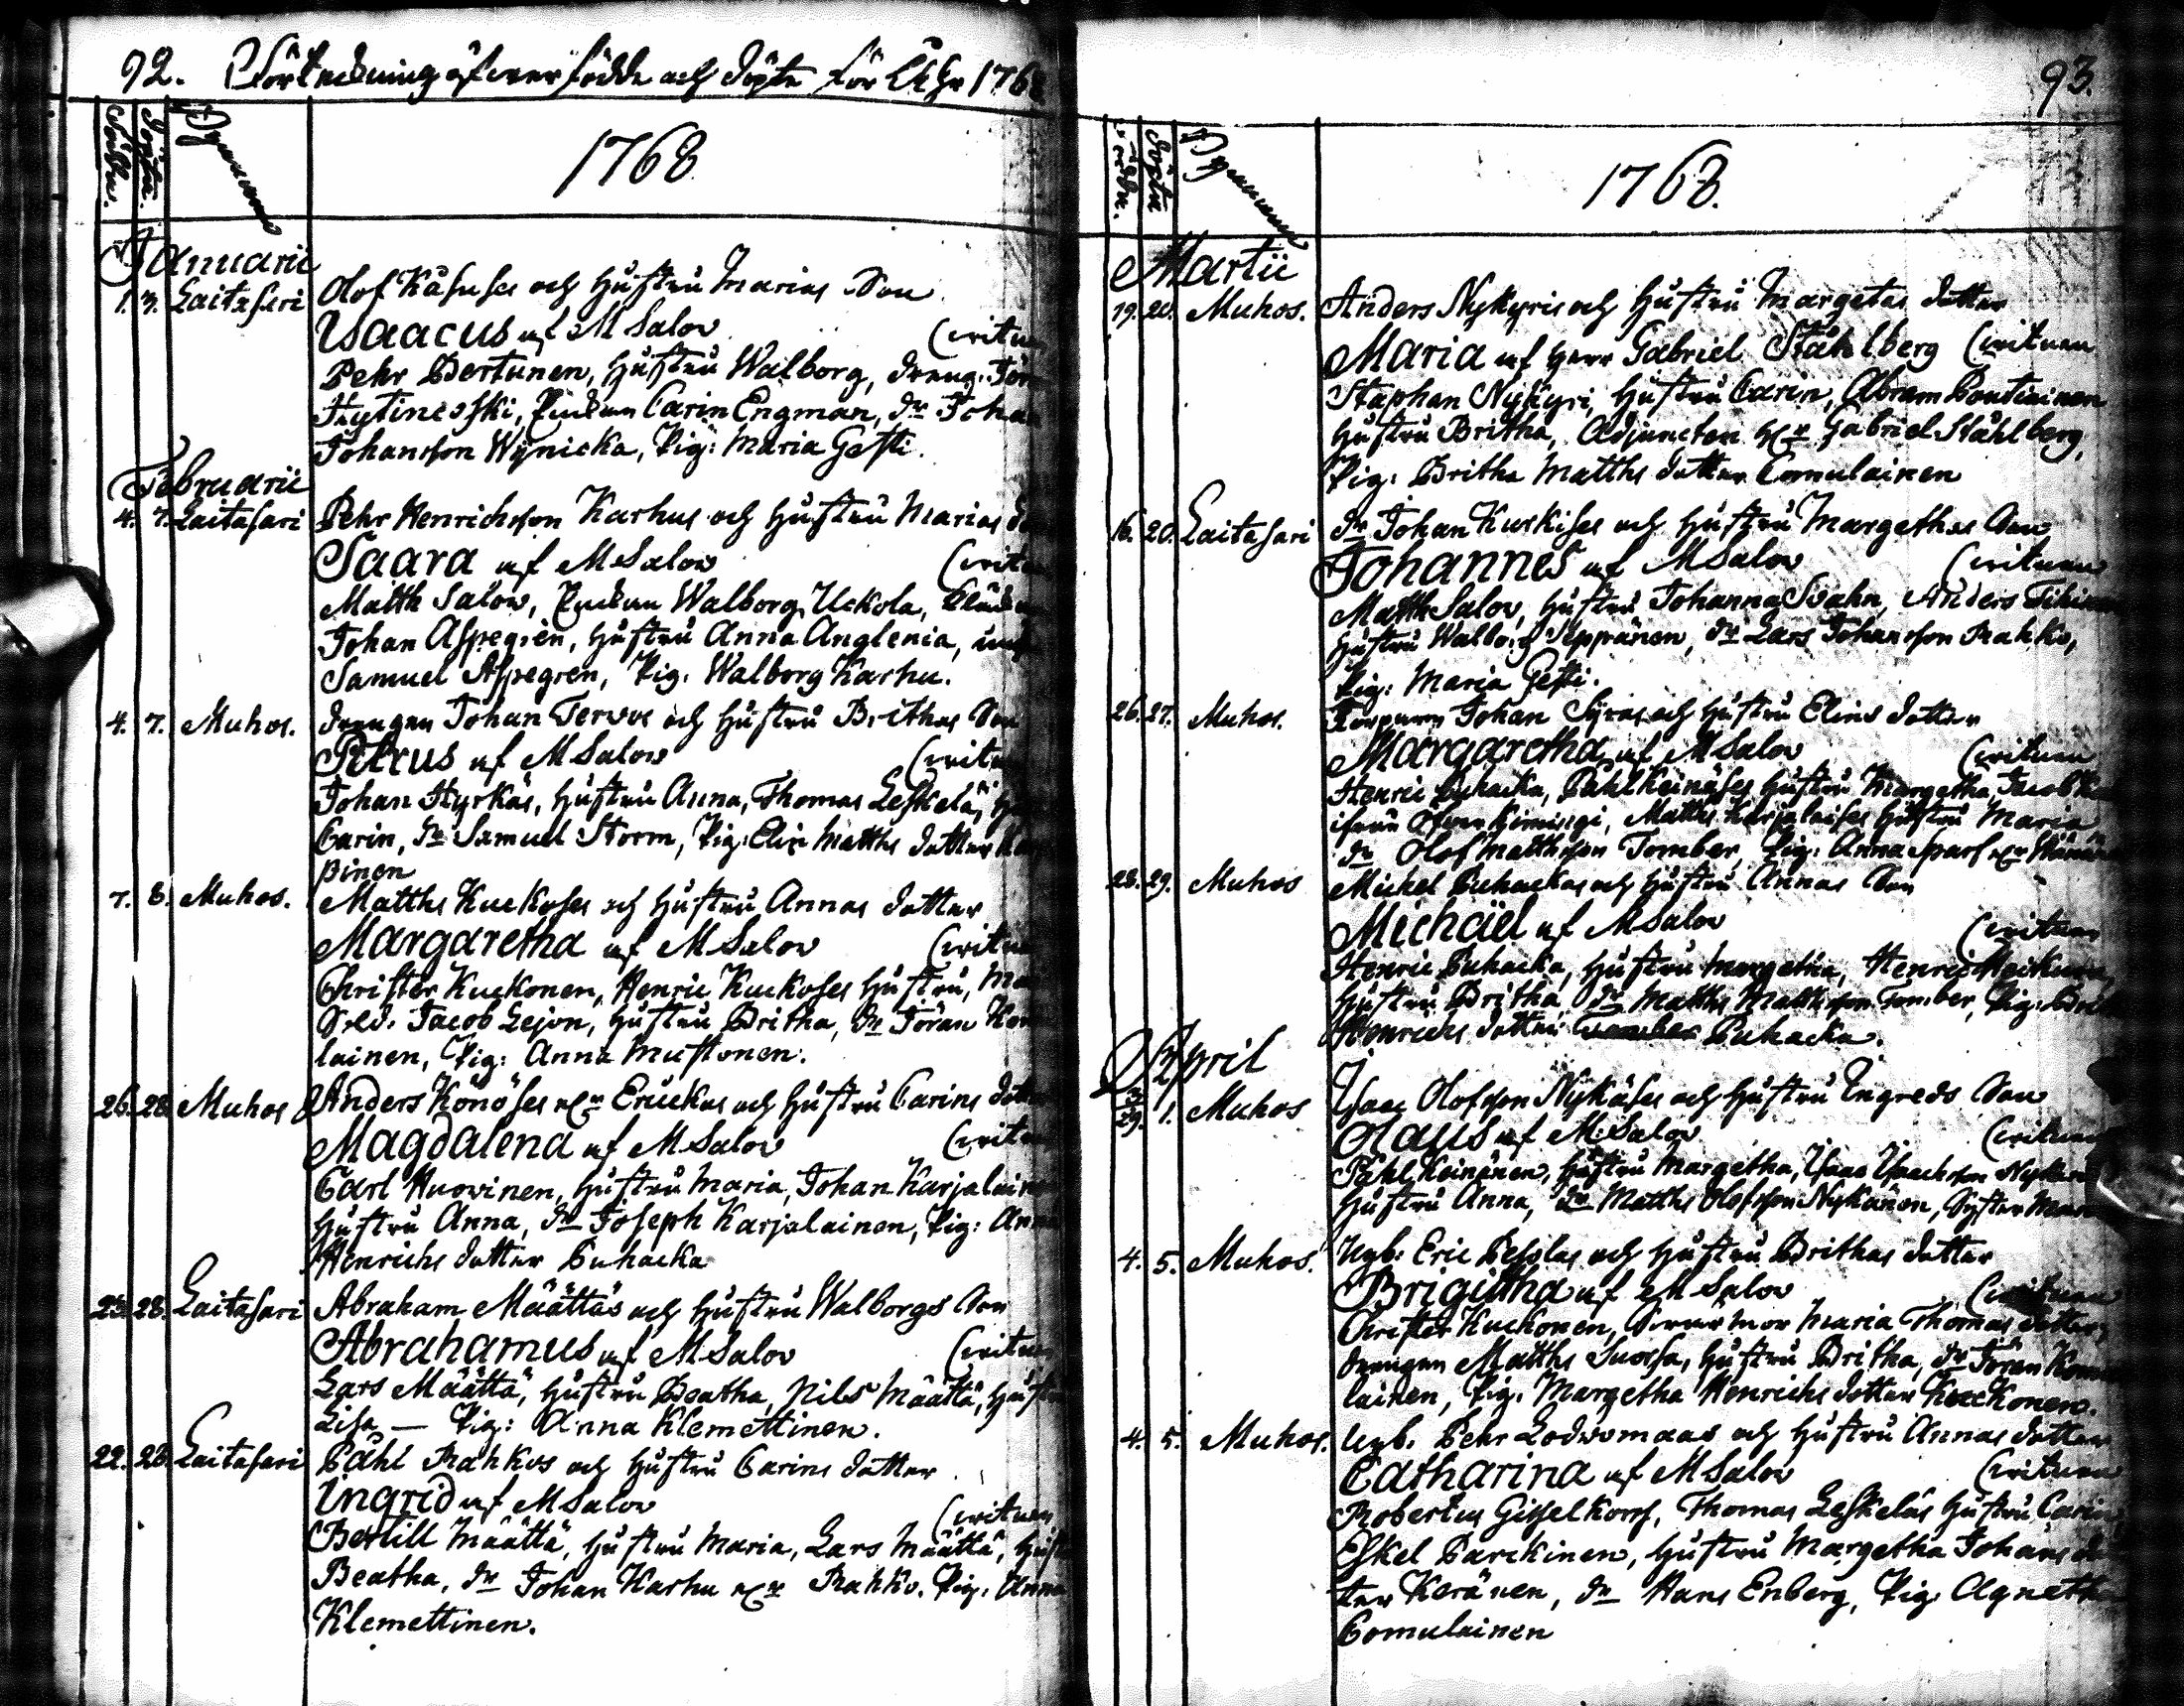 92. Förteckning öfwer födde och döpte för Åhr 1768
Födde. Döpte. Byarne
1768
Januarii
1. 3. Laitasari Olof Käsuses och Hustru Marias Son
Isaacus af M Salov (vittnen
Pehr Pertunen, Hustru Walborg, dreng. Jör
Hytinoski, Enckan Carin Engman, dr Joha
Johansson Wynicka, Pig: Maria Gesti.
Februarii
4. 7. Laitasari Pehr Henrichsson Karhus och Hustru Marias
Saara af M Salov (vittn
Matth Salow, Enckan Walborg Uckola,
Johan Aspegrén, Hustru Anna Anglenia,
Samuel Aspegren, Pig. Walborg Karhu.
4. 7. Muhos. drengen Johan Tervos och Hustru Brithas Son
Petrus af M Salow (vittn
Johan Hyrkäs, Hustru Anna, Thomas Leskelä,
Carin, dr Samuel Storm, Pig: Elin Matths dotter
pinen
7. 8. Muhos. Matths Kuckoses och Hustru Annas dotter
Margaretha af M Salov (vittn
Christer Kuckonen, Henric Kuckoses Hustru, Ma
Sold. Jacob Lejon, Hustru Britha, dr Jöran Kom
lainen, Pig: Anna Mustonen.
26. 28. Muhos Anders Könöses Eruckas och Hustru Carins dott
Magdalena af M Salov (vittn
Carl Huovinen, Hustru Maria, Johan Karjalain
Hustru Anna, dr Joseph Karjalainen, Pig: Ann
Henrichs dotter Puhacka
25. 28. Laitasari Abraham Määttäs och Hustru Walborgs Son
Abrahamus af M Salov (vittn
Lars Määttä, Hustru Beatha, Nils Määttä, Hustr
Lisa — Pig: Anna Klemettinen.
22. 28. Laitasari Påhl Rahkos och Hustru Carins dotter
Ingrid af M Salov (vittnen
Bertill Määttä, Hustru Maria, Lars Määttä, Hust
Beatha, dr Johan Karhu Rahko. Pig. Anna
Klemettinen.
93.
Födde. Döpte Byarne
1768.
Martii
19. 20. Muhos. Anders Nykyris och Hustru Margetas dotter
Maria af Herr Gabriel Ståhlberg (vittnen
Staphan Nykyri, Hustru Carin, Abram Pontinainen
Hustru Britha, Adjuncten Hr Gabriel Ståhlberg,
Pig. Britha Matths dotter Comulainen
16. 20. Laitasari dr Johan Kurkises och Hustru Margethas Son
Johannes af M Salov (vittnen
Matth Salov, Hustru Johanna Svahn, Anders Tihinen
Hustru Walborg Seppänen, dr Lars Johansson Rahko,
Pig: Maria Gesti.
26. 27. Muhos. Torparn Johan Syras och Hustru Elins dotter
Margaretha af M Salov (vittnen
Henric Puhacka, Påhl Keinäses Hustru Margetha, Jacob
Matths Karjalaises Hustru Maria
dr Olof Matthsson Tomber, Pig: Anna
28. 29. Muhos Michel Puhackas och Hustru Annas Son
Michaël af M Salov (vittnen
Henric Puhacka, Hustru Margetha, Henric
Hustru Britha, dr Matths Matthsson Tomber, Pig. Brit
Henrichs dotter Puhacka.
April
29. 1. Muhos Isaac Olofsson Nykäses och Hustru Ingreds Son
Olaus af M: Salov (vittnen
Påhl Keinänen, Hustru Margetha, Isaac Isaachson Nykän
Hustru Anna, dr Matths Olofsson Nykänen, Syster Mar
4. 5. Muhos. Nyb: Eric Pesolas och Hustru Brithas dotter
Brigitha af M Salov (vittnen
Christer Kuckonen, Maria Thomas dotter,
drengen Matths Suorsa, Hustru Britha, dr Jöran Komu
lainen, Pig. Margetha Henrichs dotter Kuckonen.
4. 5. Muhos. Nyb. Pehr Lodwomaas och Hustru Annas dotter
Catharina af M Salov (vittnen
Robertus Gisselkors, Thomas Leskeläs Hustru Carin,
Eskel Parckinen, Hustru Margetha Johans dot
ter Keränen, dr Hans Enberg, Pig. Agneth
Comulainen